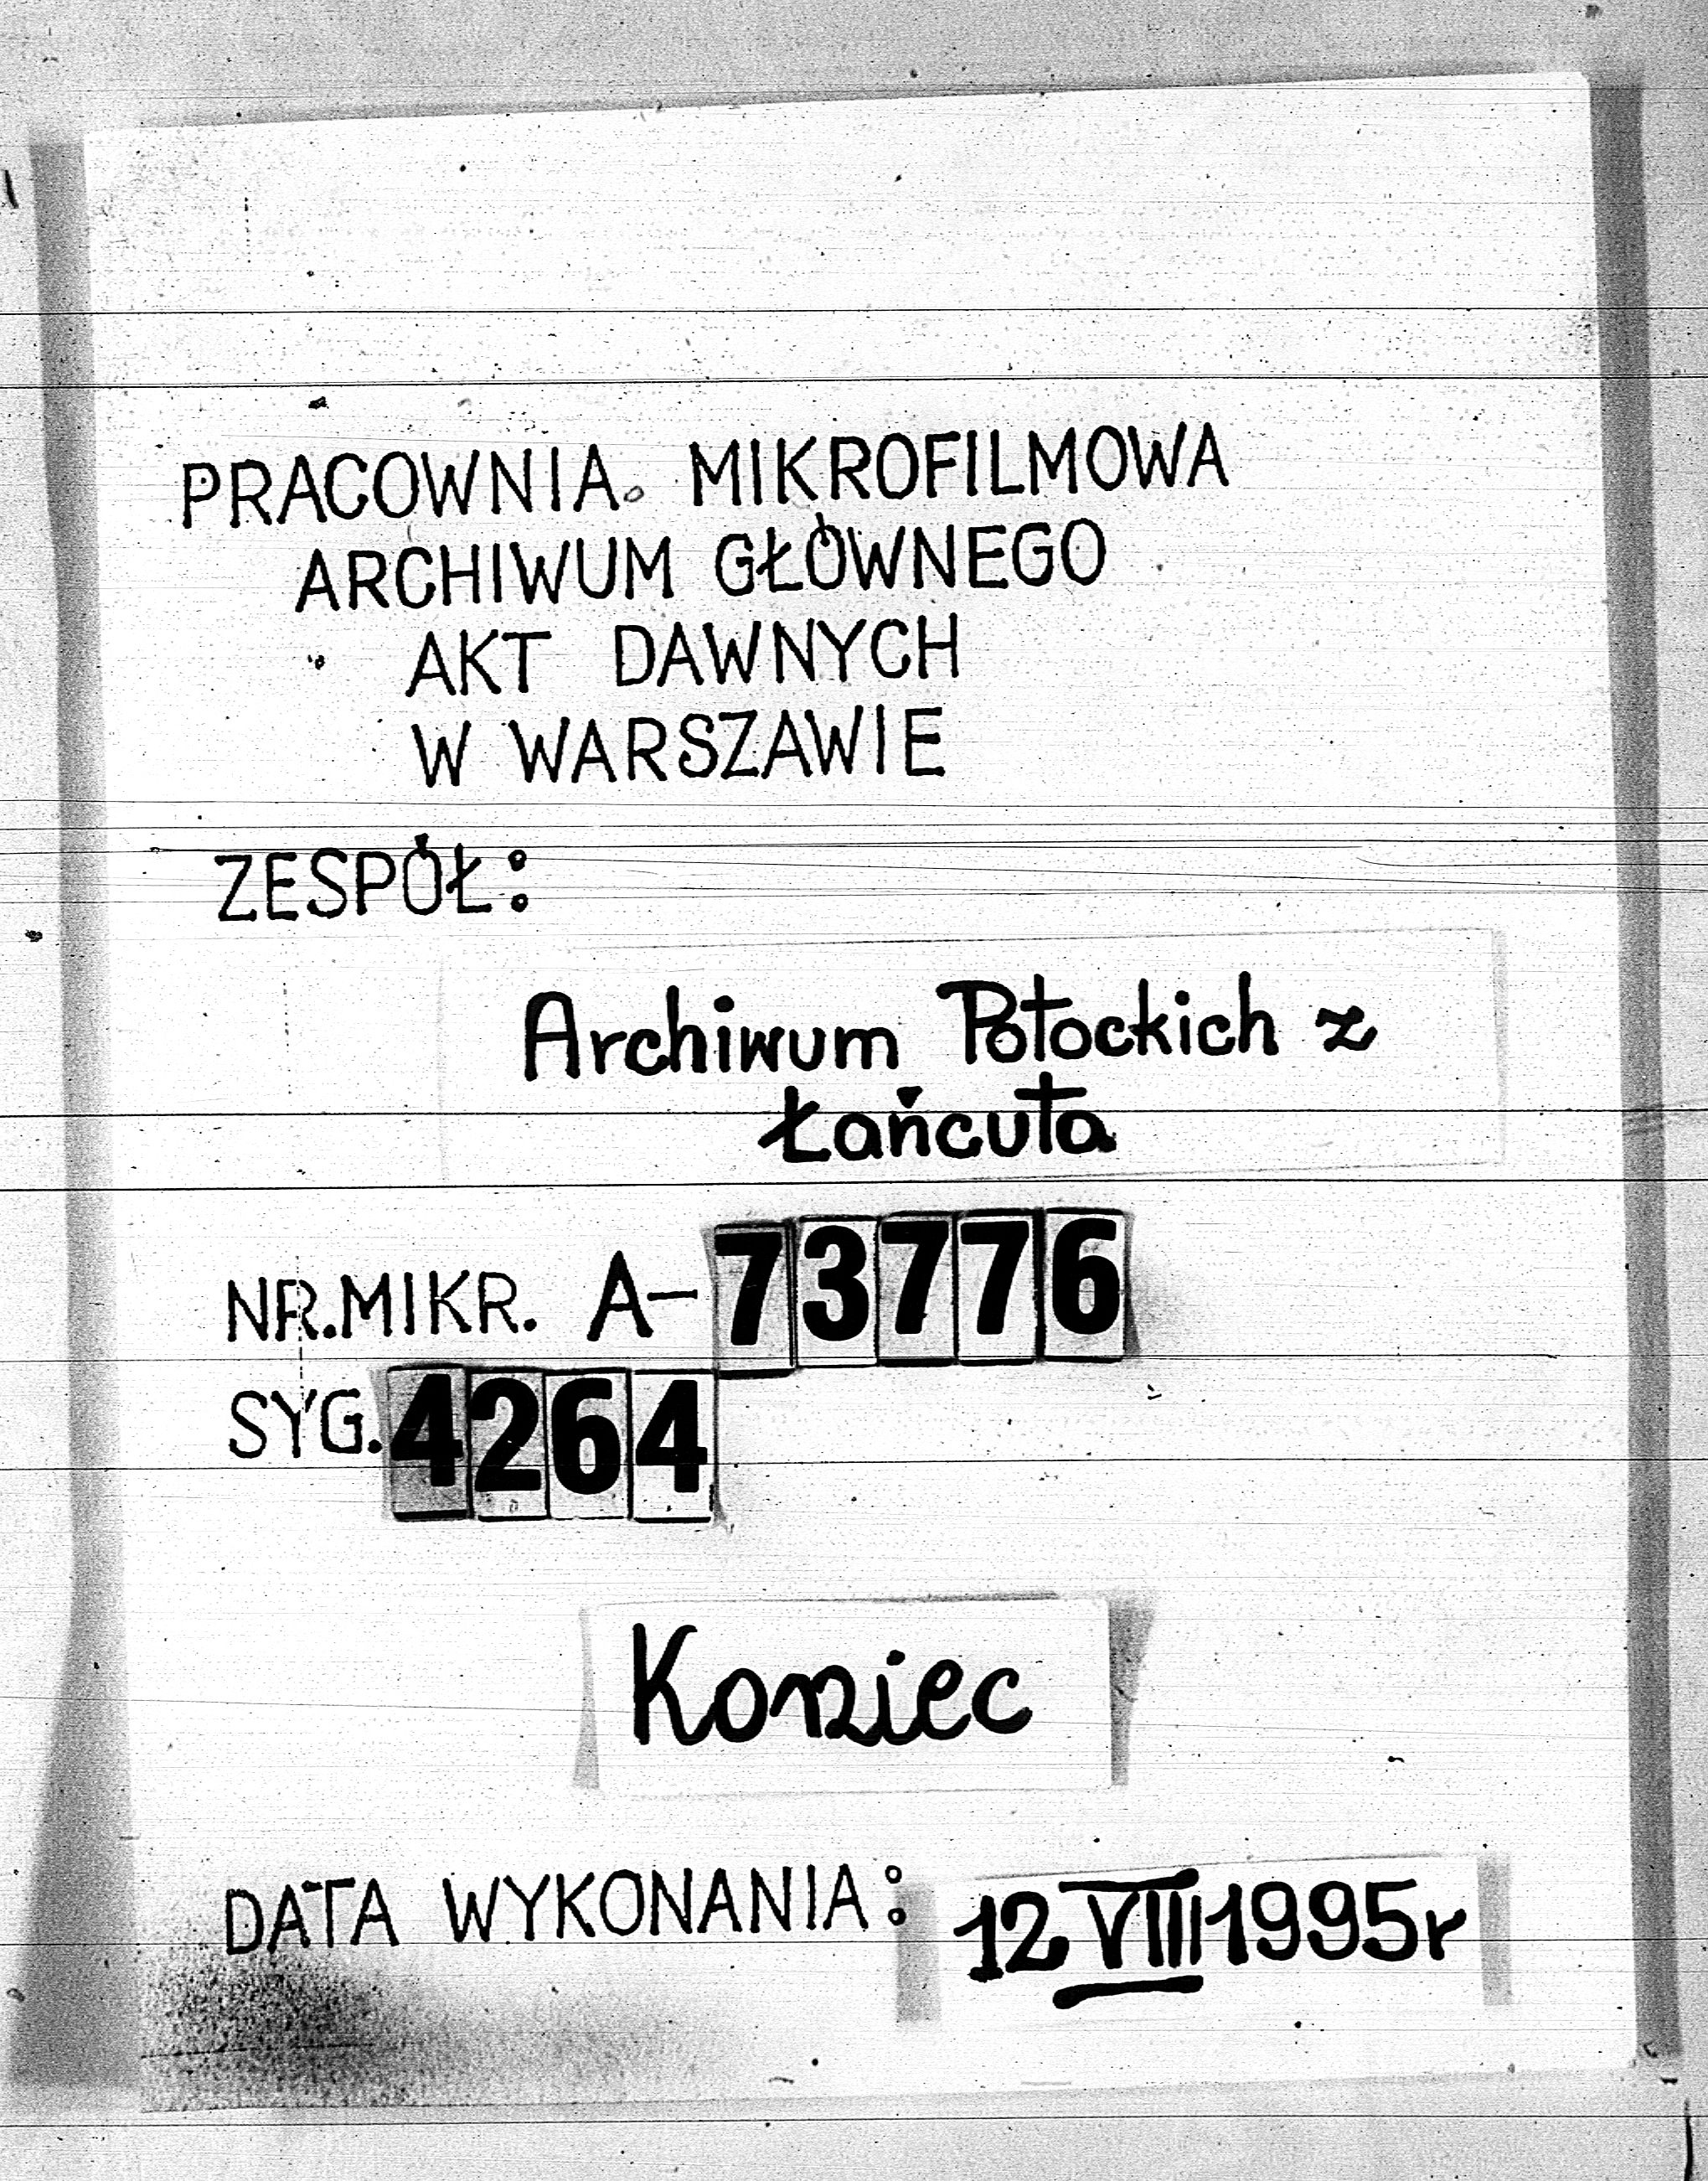 PRACOWNIA MIKROFILMOWA
ARCHIWUM GŁÓWNEGO
AKT DAWNYCH
W WARSZAWIE
ZESPÓŁ:
Archiwum Potockich z
Łańcuta
NR.MIKR. A-73776
SYG.4264
Koniec
DATA WYKONANIA: 12 VIII 1995r